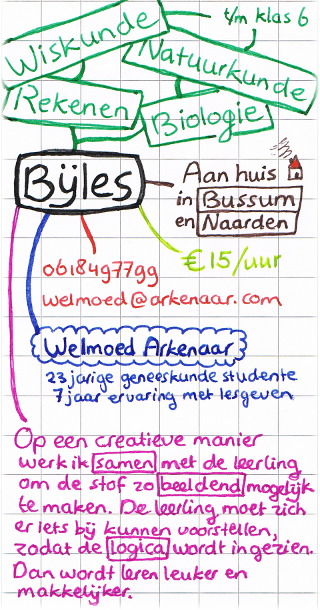 Wiskunde
t/m klas 6
Natuurkunde
Rekenen
Biologie
Bijles
Aan huis
in Bussum
en Naarden
€15/uur
0618497799
welmoed@arkenaar.com
Welmoed Arkenaar
23 jarige geneeskunde studente
7 jaar ervaring met lesgeven
Op een creatieve manier
werk ik samen met de leerling
om de stof zo beeldend mogelijk
te maken. De leerling moet zich
er iets bij kunnen voorstellen,
zodat de logica wordt ingezien.
Dan wordt leren leuker en
makkelijker.